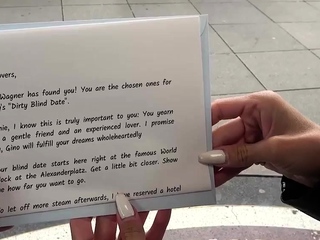 overs,
Wagner has found you! You are the chosen ones for
's "Dirty Blind Date".
nie, I know this is truly important to you: You yearn
a gentle friend and an experienced lover. I promise
, Gino will fulfill your dreams wholeheartedly
our blind date starts here right at the famous World
lock at the Alexanderplatz. Get a little bit closer. Show
e how far you want to go.
o let off more steam afterwards, I have reserved a hotel